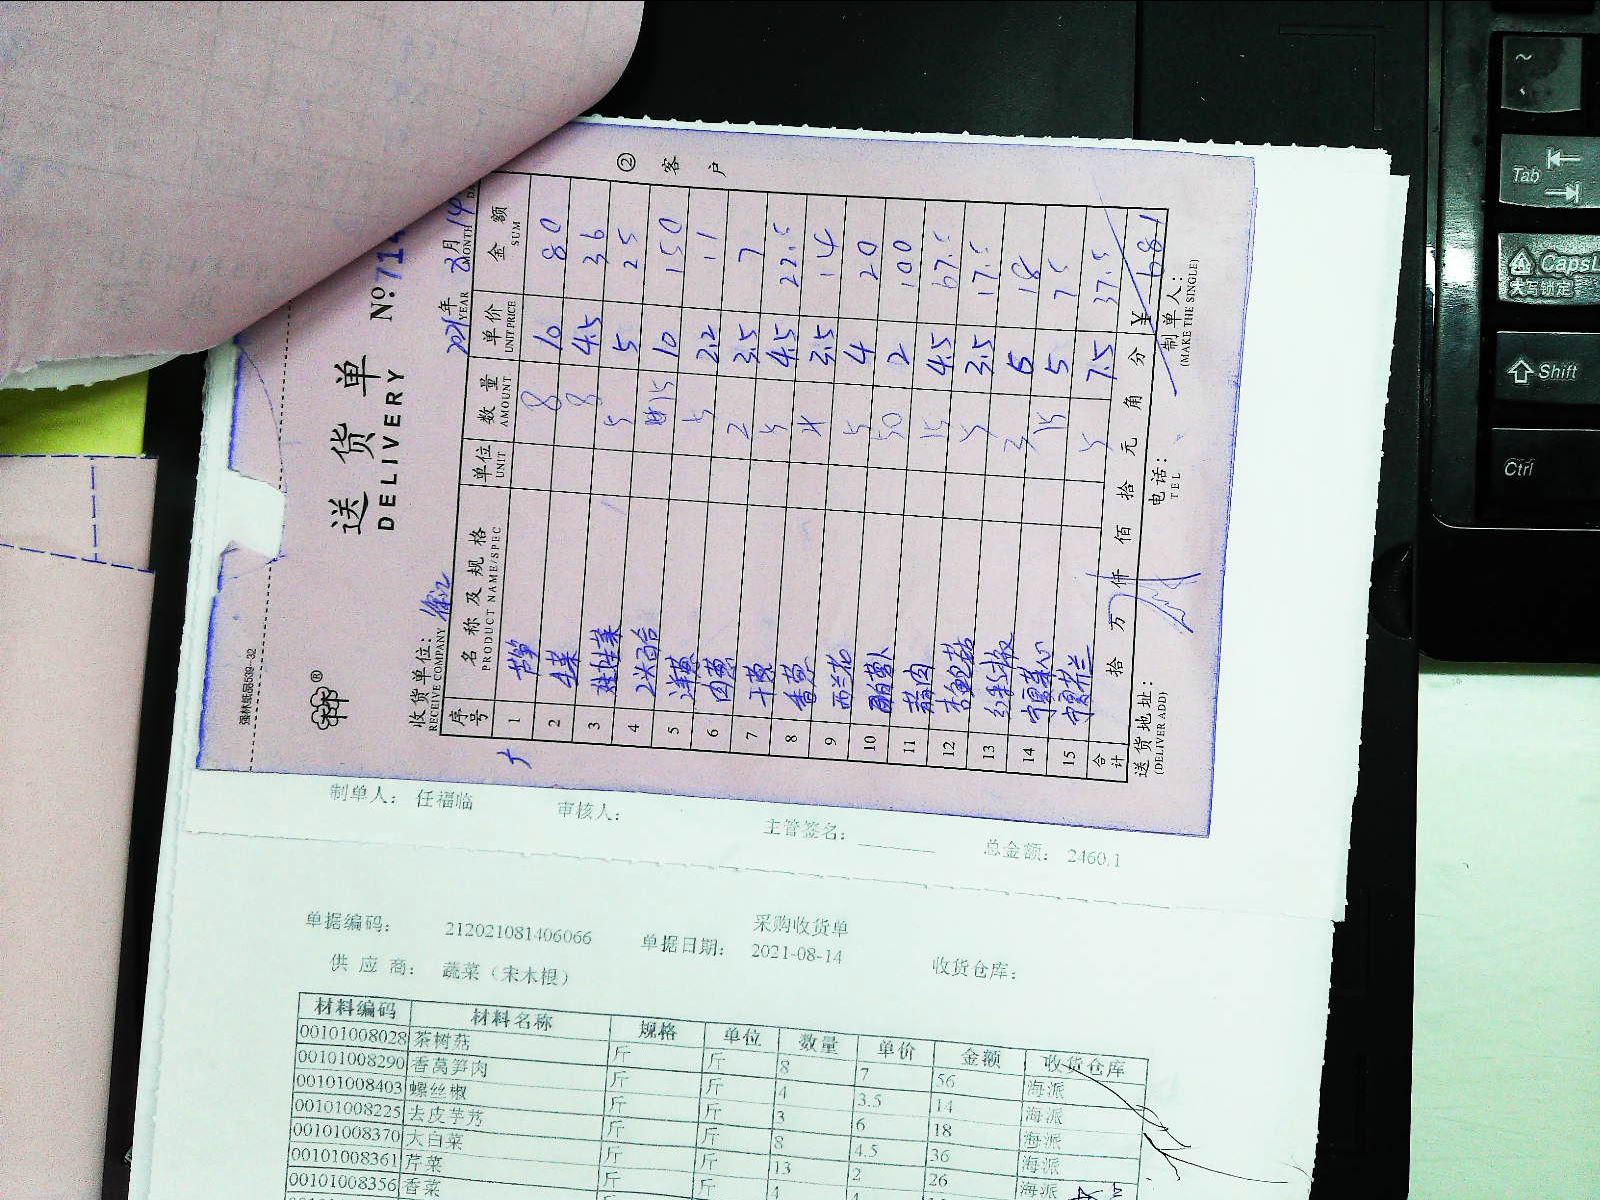 ② 客户
送货单
DELIVERY
№:714
收货单位： 徐汇
RECEIVE COMPANY
2021年 8月 14
YEAR MONTH
序号 名称及规格 单位 数量 单价 金额
PRODUCT NAME/SPEC UNIT AMOUNT UNIT PRICE SUM
1 芦笋 8 10 80
2 生菜 8 4.5 36
3 娃娃菜 5 5 25
4 15 10 150
5 洋葱 5 2.2 11
6 2 3.5 7
7 干葱 5 4.5 22.5
8 香葱 4 3.5 14
9 西兰花 5 4 20
10 50 2 100
11 15 4.5 67.5
12 杏鲍菇 5 3.5 17.5
13 3 6 18
14 15 5 75
15 5 7.5 37.5
合计 拾 万 仟 佰 拾 元 角 分 ¥ 681
送货地址：
(DELIVER ADD)
电话：
TEL
制单人：
(MAKE THE SINGLE)
强林纸品539-32
®
制单人： 任福临 审核人： 主管签名： 总金额： 2460.1
采购收货单
单据编码： 212021081406066 单据日期： 2021-08-14 收货仓库：
供 应 商： 蔬菜（宋木根）
材料编码 材料名称 规格 单位 数量 单价 金额 收货仓库
00101008028 茶树菇 斤 斤 8 7 56 海派
00101008290 香莴笋肉 斤 斤 4 3.5 14 海派
00101008403 螺丝椒 斤 斤 3 6 18 海派
00101008225 去皮芋艿 斤 斤 8 4.5 36 海派
00101008370 大白菜 斤 斤 13 2 26 海派
00101008361 芹菜 斤 斤 4 4
00101008356 香菜
~
Tab
CapsL
大写锁定
Shift
Ctrl